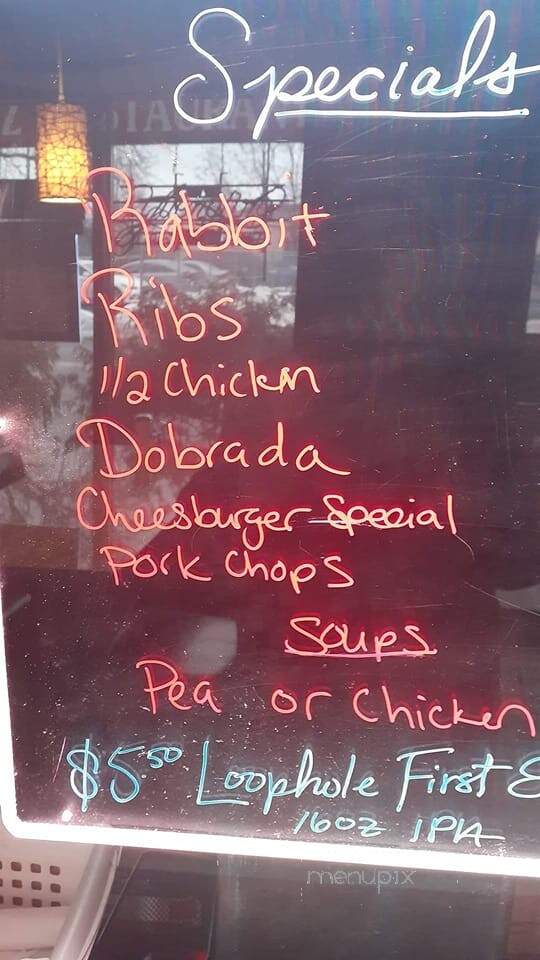 Specials
Rabbit
Ribs
1/2 Chicken
Dobrada
Cheesburger Special
Pork Chops
Soups
Pea or Chicken
$5.50 Loophole First
16oz IPA
menupix